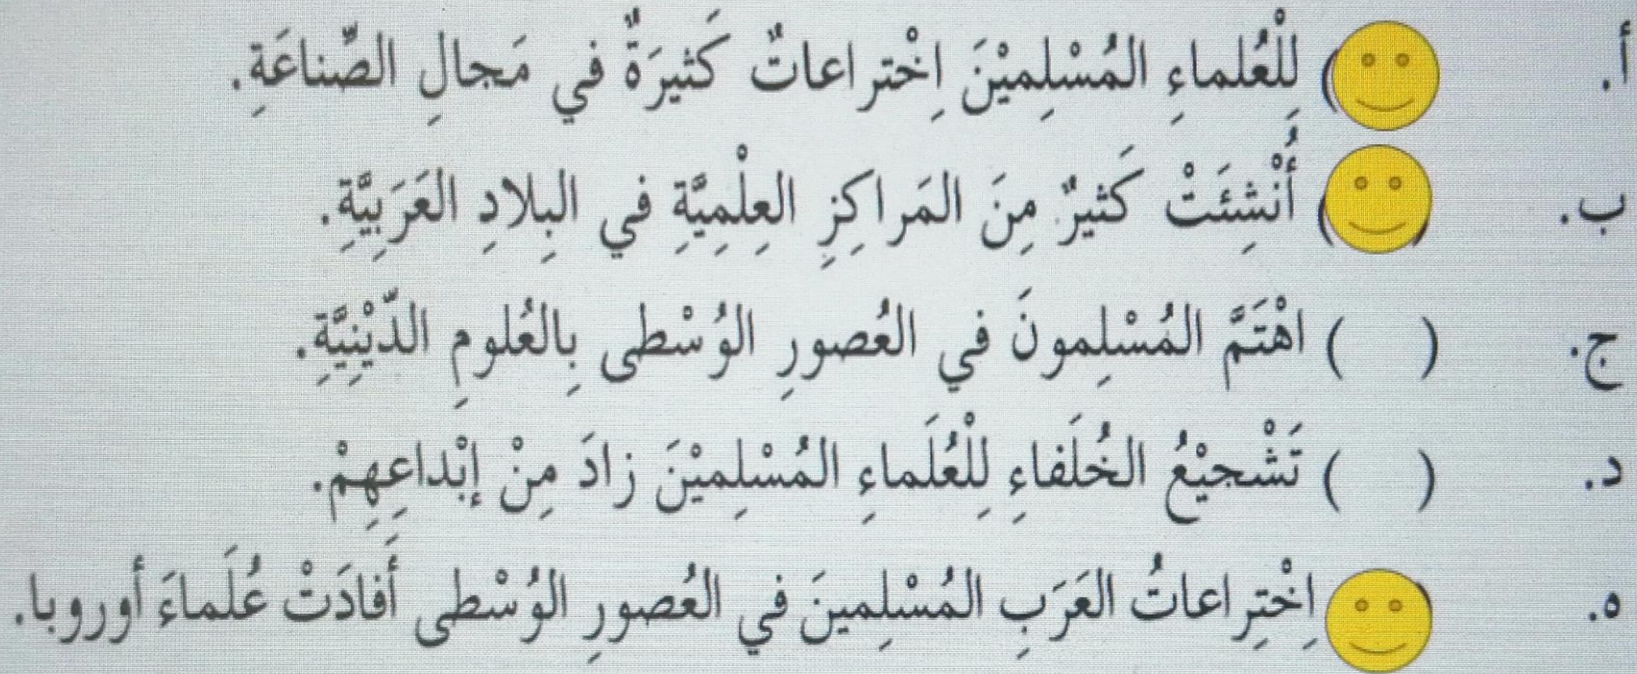 أ. ) لِلْعُلماءِ المُسْلِمِيْنَ اِخْتراعاتٌ كَثيرَةٌ في مَجالِ الصِّناعَةِ.
ب. ( ) أُنْشِئَتْ كَثيرٌ مِنَ المَراكِزِ العِلْمِيَّةِ في البِلادِ العَرَبِيَّةِ.
ج. ( ) اهْتَمَّ المُسْلِمونَ في العُصورِ الوُسْطى بِالعُلومِ الدِّيْنِيَّةِ.
د. ( ) تَشْجيْعُ الخُلَفاءِ لِلْعُلَماءِ المُسْلِمِيْنَ زادَ مِنْ إِبْداعِهِمْ.
ه. ( اِخْتِراعاتُ العَرَبِ المُسْلِمينَ في العُصورِ الوُسْطى أَفادَتْ عُلَماءَ أوروبا.